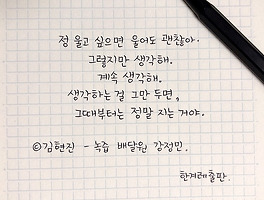 정 울고 싶으면 울어도 괜찮아.
그렇지만 생각해.
계속 생각해.
생각하는 걸 그만 두면,
그때부터는 정말 지는 거야.
©김현진 - 녹즙 배달원 강정민.
한겨레출판.